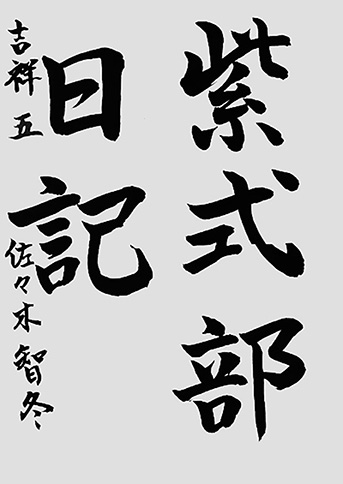 紫式部
日記
吉祥五 佐々木智冬